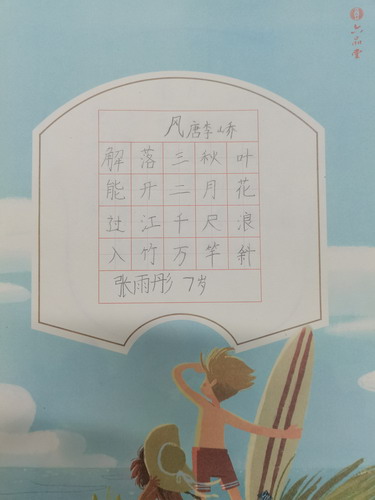 六品堂
风 唐李峤
解落三秋叶
能开二月花
过江千尺浪
入竹万竿斜
张雨彤 7岁